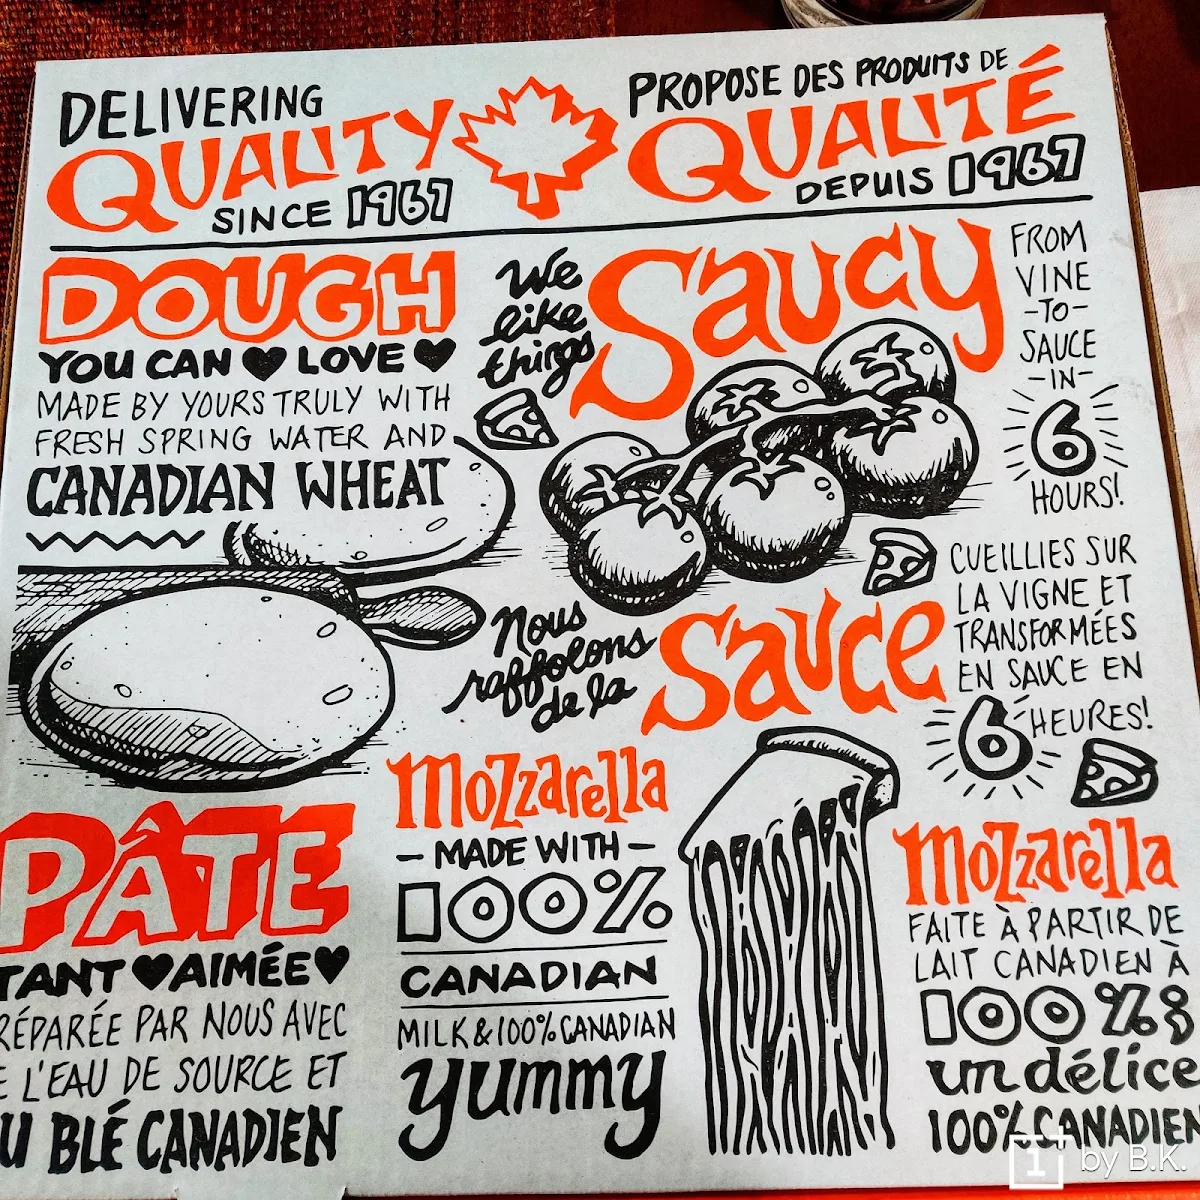 DELIVERING
QUALITY
SINCE 1967
PROPOSE DES PRODUITS DE
QUALITÉ
DEPUIS 1967
DOUGH
YOU CAN ♥ LOVE ♥
MADE BY YOURS TRULY WITH
FRESH SPRING WATER AND
CANADIAN WHEAT
We
like
things
SAUCY
FROM
VINE
-TO-
SAUCE
-IN-
6
HOURS!
CUEILLIES SUR
LA VIGNE ET
TRANSFORMÉES
EN SAUCE EN
6 HEURES!
Nous
raffolons
de la
SAUCE
PÂTE
TANT ♥ AIMÉE ♥
RÉPARÉE PAR NOUS AVEC
E L'EAU DE SOURCE ET
U BLÉ CANADIEN
Mozzarella
- MADE WITH -
100%
CANADIAN
MILK & 100% CANADIAN
yummy
Mozzarella
FAITE À PARTIR DE
LAIT CANADIEN À
100 % &
un délice
100% CANADIEN
1+ by B.K.